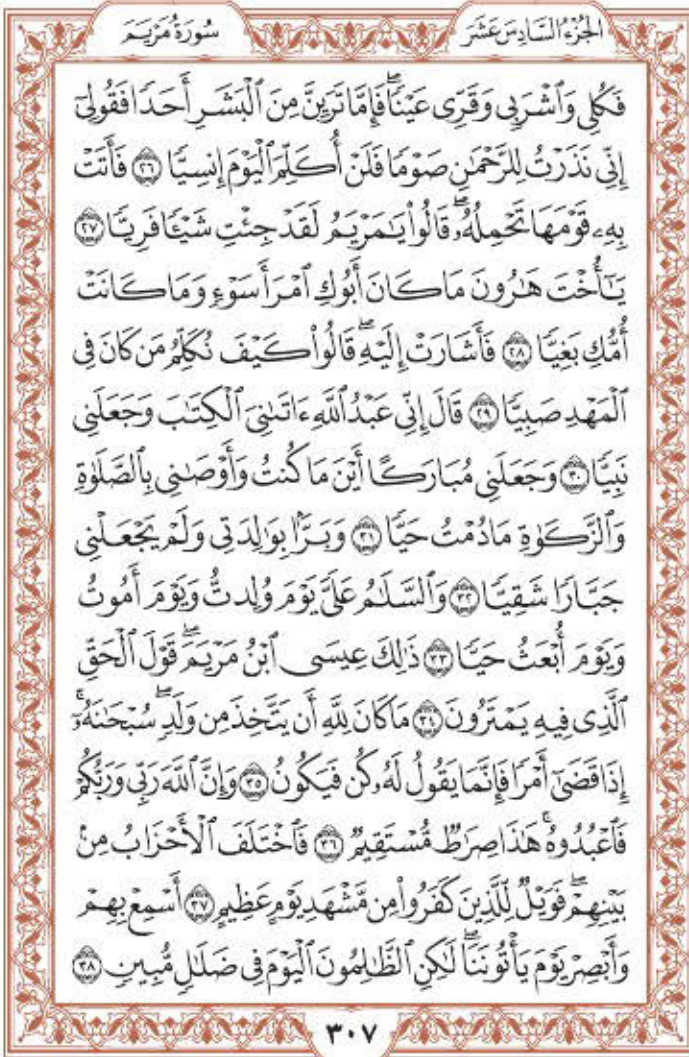 الجُزْءُ السَّادِسَ عَشَرَ
سُورَةُ مَرْيَمَ
فَكُلِي وَٱشْرَبِي وَقَرِّي عَيْنٗاۖ فَإِمَّا تَرَيِنَّ مِنَ ٱلۡبَشَرِ أَحَدٗا فَقُولِيٓ
إِنِّي نَذَرۡتُ لِلرَّحۡمَٰنِ صَوۡمٗا فَلَنۡ أُكَلِّمَ ٱلۡيَوۡمَ إِنسِيّٗا ٢٦ فَأَتَتۡ
بِهِۦ قَوۡمَهَا تَحۡمِلُهُۥۖ قَالُواْ يَٰمَرۡيَمُ لَقَدۡ جِئۡتِ شَيۡـٔٗا فَرِيّٗا ٢٧
يَٰٓأُخۡتَ هَٰرُونَ مَا كَانَ أَبُوكِ ٱمۡرَأَ سَوۡءٖ وَمَا كَانَتۡ
أُمُّكِ بَغِيّٗا ٢٨ فَأَشَارَتۡ إِلَيۡهِۖ قَالُواْ كَيۡفَ نُكَلِّمُ مَن كَانَ فِي
ٱلۡمَهۡدِ صَبِيّٗا ٢٩ قَالَ إِنِّي عَبۡدُ ٱللَّهِ ءَاتَىٰنِيَ ٱلۡكِتَٰبَ وَجَعَلَنِي
نَبِيّٗا ٣٠ وَجَعَلَنِي مُبَارَكًا أَيۡنَ مَا كُنتُ وَأَوۡصَٰنِي بِٱلصَّلَوٰةِ
وَٱلزَّكَوٰةِ مَا دُمۡتُ حَيّٗا ٣١ وَبَرَّۢا بِوَٰلِدَتِي وَلَمۡ يَجۡعَلۡنِي
جَبَّارٗا شَقِيّٗا ٣٢ وَٱلسَّلَٰمُ عَلَيَّ يَوۡمَ وُلِدتُّ وَيَوۡمَ أَمُوتُ
وَيَوۡمَ أُبۡعَثُ حَيّٗا ٣٣ ذَٰلِكَ عِيسَى ٱبۡنُ مَرۡيَمَۖ قَوۡلَ ٱلۡحَقِّ
ٱلَّذِي فِيهِ يَمۡتَرُونَ ٣٤ مَا كَانَ لِلَّهِ أَن يَتَّخِذَ مِن وَلَدٖۖ سُبۡحَٰنَهُۥٓۚ
إِذَا قَضَىٰٓ أَمۡرٗا فَإِنَّمَا يَقُولُ لَهُۥ كُن فَيَكُونُ ٣٥ وَإِنَّ ٱللَّهَ رَبِّي وَرَبُّكُمۡ
فَٱعۡبُدُوهُۚ هَٰذَا صِرَٰطٞ مُّسۡتَقِيمٞ ٣٦ فَٱخۡتَلَفَ ٱلۡأَحۡزَابُ مِنۢ
بَيۡنِهِمۡۖ فَوَيۡلٞ لِّلَّذِينَ كَفَرُواْ مِن مَّشۡهَدِ يَوۡمٍ عَظِيمٍ ٣٧ أَسۡمِعۡ بِهِمۡ
وَأَبۡصِرۡ يَوۡمَ يَأۡتُونَنَا لَٰكِنِ ٱلظَّٰلِمُونَ ٱلۡيَوۡمَ فِي ضَلَٰلٖ مُّبِينٖ ٣٨
٣٠٧